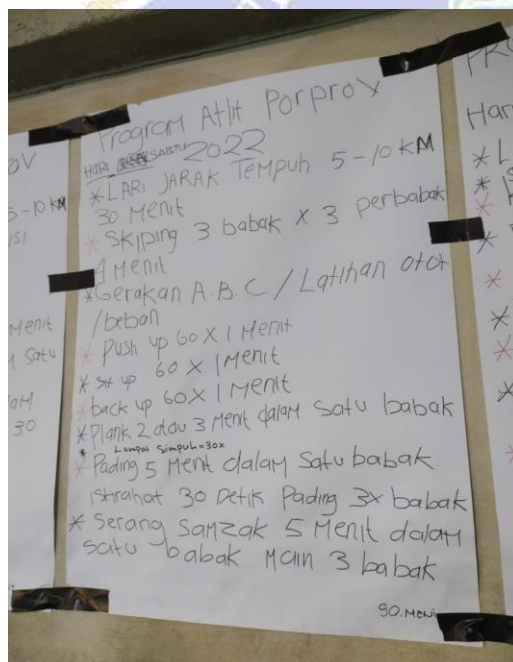 Program Atlit Porprov
HARI SABTU 2022
* LARI JARAK TEMPUH 5-10 KM
30 Menit
* Skiping 3 babak x 3 perbabak
1 Menit
* Gerakan A.B.C / Latihan otot
/beban
* Push up 60 x 1 Menit
* Sit up 60 x 1 Menit
* back up 60 x 1 Menit
* Plank 2 atau 3 Menit dalam satu babak
* Lompat Simpuh = 30x
* Pading 5 Menit dalam satu babak
istrahat 30 Detik Pading 3x babak
* Serang Samzak 5 Menit dalam
satu babak Main 3 babak
90. Meni
OV
5-10 KM
ISI
Menit
Satu
30
Har
* L